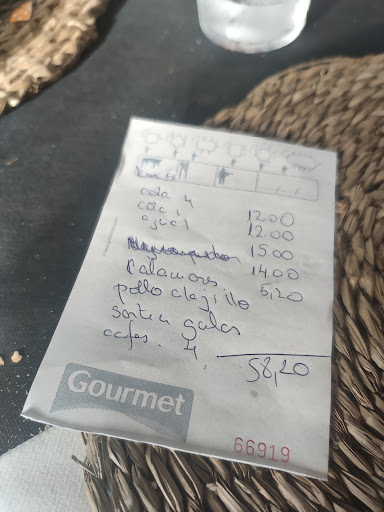 cola 4
coc 1
agua 1 12.00
12.00
Calamares 15.00
pollo alajillo 14.00
sarten gulas 5,20
cafes. 4
58,20
Gourmet
66919